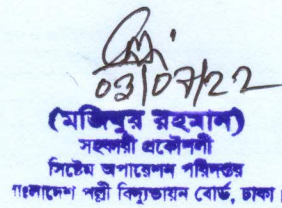 03/07/22
(মজিবুর রহমান)
সহকারী প্রকৌশলী
সিস্টেম অপারেশন পরিদপ্তর
বাংলাদেশ পল্লী বিদ্যুতায়ন বোর্ড, ঢাকা।